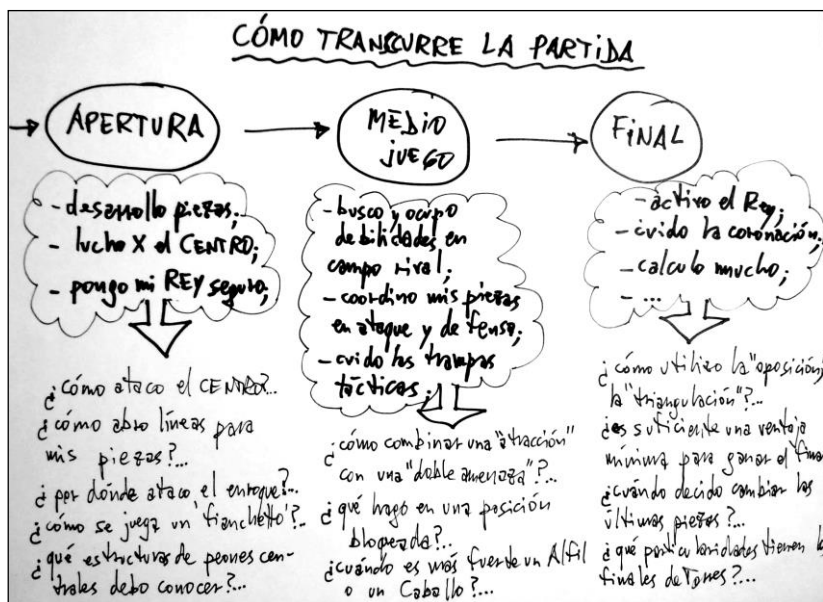 CÓMO TRANSCURRE LA PARTIDA
APERTURA
- desarrollo piezas;
- lucho X el CENTRO;
- pongo mi REY seguro;
¿cómo ataco el CENTRO?...
¿cómo abro líneas para
mis piezas?...
¿por dónde ataco el enroque?...
¿cómo se juega un "fianchetto"?...
¿qué estructuras de peones cen-
trales debo conocer?...
MEDIO
JUEGO
- busco y ocupo
debilidades en
campo rival;
- coordino mis piezas
en ataque y defensa;
- cuido las trampas
tácticas;
¿cómo combinar una "atracción"
con una "doble amenaza"?...
¿qué hago en una posición
bloqueada?...
¿cuándo es más fuerte un Alfil
o un Caballo?...
FINAL
- activo el Rey;
- cuido la coronación;
- calculo mucho;
- ...
¿cómo utilizo la "oposición",
la "triangulación"?...
¿es suficiente una ventaja
mínima para ganar el final
¿cuándo decido cambiar las
últimas piezas?...
¿qué particularidades tienen lo
finales de Torres?...